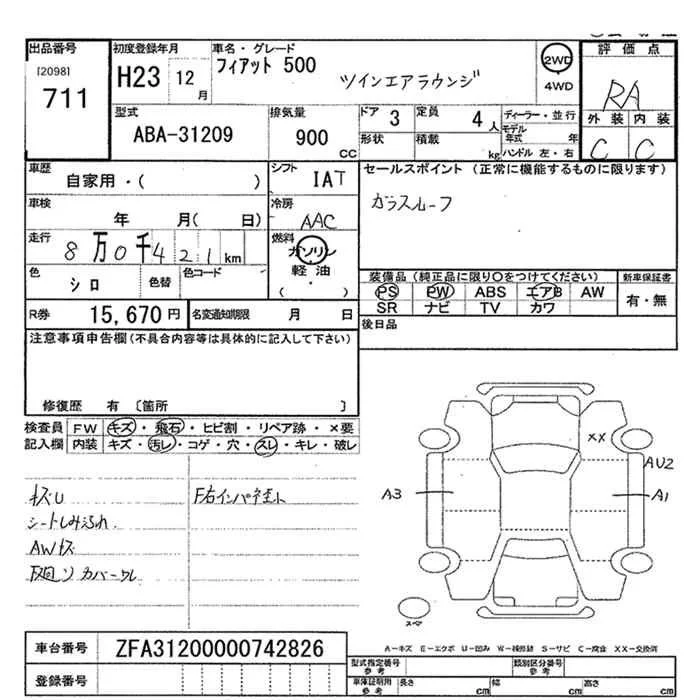 出品番号
[2098]
711
初度登録年月
H23 12 月
車名・グレード
フィアット 500
ツインエアラウンジ
2WD
4WD
評価点
RA
外装 内装
C C
型式
ABA-31209
排気量
900 CC
ドア 3
定員 4 人
形状
積載 kg
ディーラー・並行
モデル年式 年
ハンドル 左・右
車歴
自家用・( )
シフト
IAT
セールスポイント (正常に機能するものに限ります)
ガラスルーフ
車検
年 月( 日)
冷房
AAC
走行
8万0千421 km
燃料
ガソリン
軽油
・
( )
色
シロ
色替
色コード
装備品 (純正品に限り○をつけてください)
PS PW ABS エアB AW
SR ナビ TV カワ
新車保証書
有・無
R券 15,670 円
名変通知期限 月 日
後日品
注意事項申告欄(不具合内容等は具体的に記入して下さい)
修復歴 有 〔箇所 〕
検査員 FW キズ・飛石・ヒビ割・リペア跡・×要
記入欄 内装 キズ・汚し・コゲ・穴・スレ・キレ・破レ
キズU
シートしみ汚れ.
AWキズ
F右インパネ歪ト
XX
AU2
A3
A1
スペア
車台番号 ZFA31200000742826
登録番号
A－キズ E－エクボ U－凹み W－補修跡 S－サビ C－腐食 XX－交換済
型式指定番号
参考
類別区分番号
参考
車庫証明用
参考
長さ cm 幅 cm 高さ cm